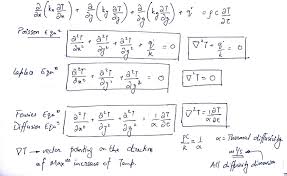 ∂/∂x (kₓ ∂T/∂x) + ∂/∂y (k_y ∂T/∂y) + ∂/∂z (k_z ∂T/∂z) + q̇ = ρc ∂T/∂t
Poisson Eqnⁿ
∂²T/∂x² + ∂²T/∂y² + ∂²T/∂z² + q̇/k = 0   ∇²T + q̇/k = 0
Laplace Eqnⁿ
∂²T/∂x² + ∂²T/∂y² + ∂²T/∂z² = 0   ∇²T = 0
Fourier Eqnⁿ
Diffusion Eqnⁿ
∂²T/∂x² + ∂²T/∂y² + ∂²T/∂z² = 1/α ∂T/∂t   ∇²T = 1/α ∂T/∂t
∇T → vector pointing on the direction
of Maxᵐ increase of Temp.
ρc/k = 1/α   α = Thermal diffusivity
m²/s
All diffusity dimension